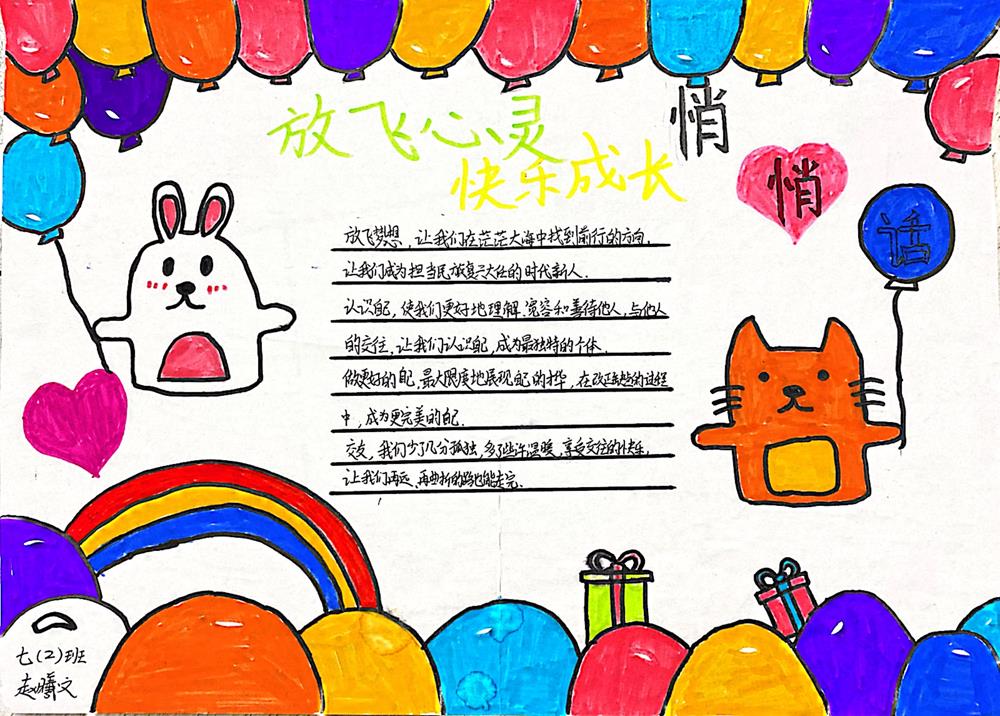 放飞心灵
快乐成长
悄
悄
话
放飞梦想，让我们在茫茫大海中找到前行的方向。
让我们成为担当民族复兴大任的时代新人。
认识自己，使我们更好地理解、宽容和善待他人，与他人
的交往，让我们认识自己，成为最独特的个体。
做更好的自己，最大限度地展现自己的才华，在改正缺点的过程
中，成为更完美的自己。
交友，我们少了几分孤独，多了些许温暖，享受交往的快乐。
让我们再远、再曲折的路也能走完。
七(2)班
赵曦文